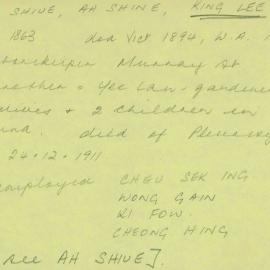 SHUE, AH SHINE, KING LEE
1863 dod Vict 1894, W.A. 1
Storekeeper Murray St
brother = Yee Lan - gardener
wives + 2 children in
ina. died of Pleurisy
24.12.1911
employed CHEU SEK ING
WONG GAIN
KI FOW.
CHEONG HING
see AH SHUE].